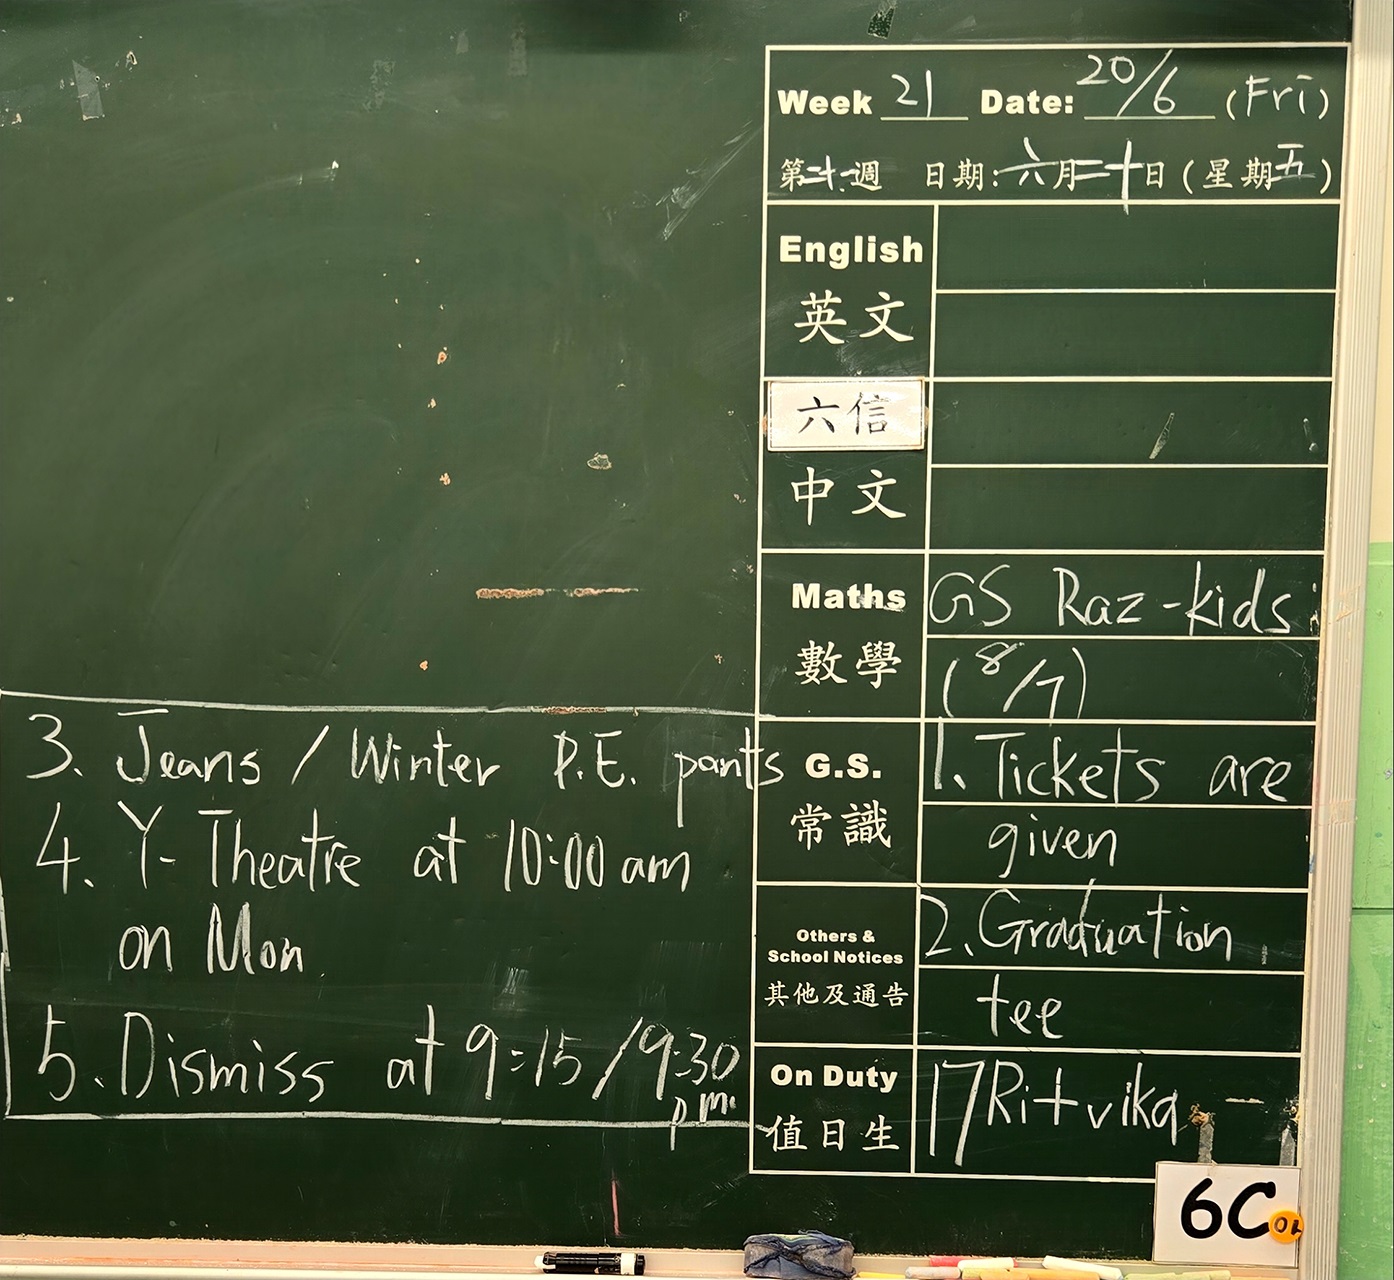 Week 21 Date: 20/6 (Fri)
第廿一週 日期:六月二十日(星期五)
English
英文
六信
中文
Maths
數學
GS Raz-kids
(8/7)
G.S.
常識
1. Tickets are
given
Others &
School Notices
其他及通告
2. Graduation
tee
3. Jeans / Winter P.E. pants
4. Y-Theatre at 10:00 am
on Mon
5. Dismiss at 9:15 / 9:30
pm.
On Duty
值日生
17 Ritvika
6C